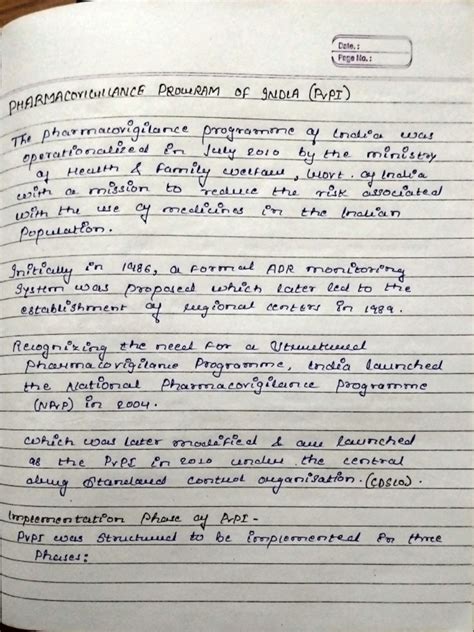 Date. :
Page No. :
PHARMACOVIGILANCE PROGRAM OF INDIA (PvPI)
The pharmacovigilance programme of India was
operationalized in July 2010 by the ministry
of Health & family welfare, Govt. of India
with a mission to reduce the risk associated
with the use of medicines in the Indian
Population.
Initially in 1986, a formal ADR monitoring
system was proposed which later led to the
establishment of regional centers in 1989.
Recognizing the need for a structured
Pharmacovigilance Programme, India launched
the National Pharmacovigilance Programme
(NPvP) in 2004.
which was later modified & launched
as the PvPI in 2010 under the central
drug standard control organisation. (CDSCO).
Implementation Phase of PvPI -
PvPI was structured to be implemented in three
Phases: